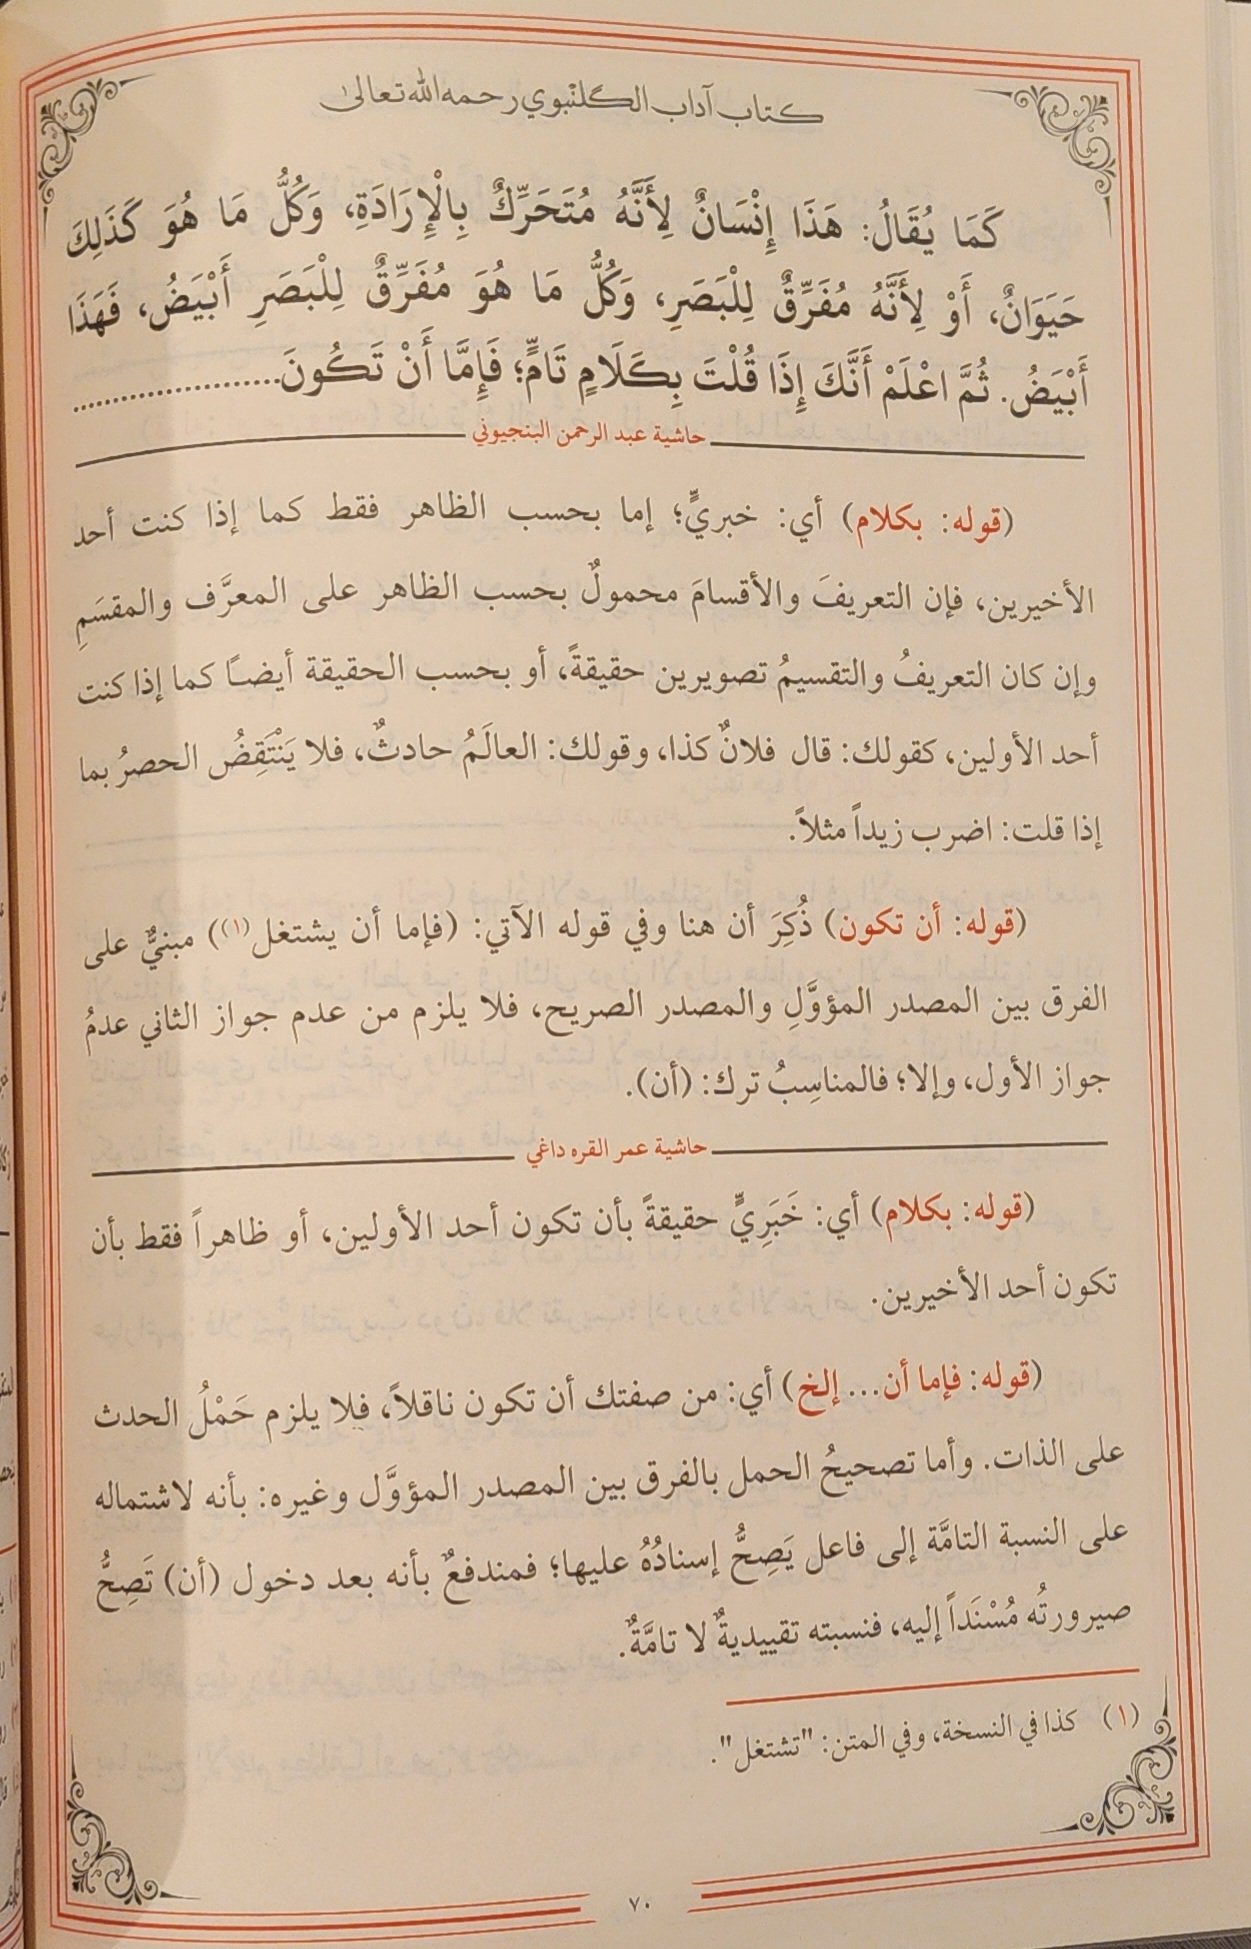 كتاب آداب الگلنبوي رحمه الله تعالى
كَمَا يُقَالُ: هَذَا إِنْسَانٌ لِأَنَّهُ مُتَحَرِّكٌ بِالْإِرَادَةِ، وَكُلُّ مَا هُوَ كَذَلِكَ
حَيَوَانٌ، أَوْ لِأَنَّهُ مُفَرِّقٌ لِلْبَصَرِ، وَكُلُّ مَا هُوَ مُفَرِّقٌ لِلْبَصَرِ أَبْيَضُ، فَهَذَا
أَبْيَضُ. ثُمَّ اعْلَمْ أَنَّكَ إِذَا قُلْتَ بِكَلَامٍ تَامٍّ؛ فَإِمَّا أَنْ تَكُونَ.....................
حاشية عبد الرحمن البنجيوني
(قوله: بكلام) أي: خبريٍّ؛ إما بحسب الظاهر فقط كما إذا كنت أحد
الأخيرين، فإن التعريفَ والأقسامَ محمولٌ بحسب الظاهر على المعرَّف والمقسَمِ
وإن كان التعريفُ والتقسيمُ تصويرين حقيقةً، أو بحسب الحقيقة أيضاً كما إذا كنت
أحد الأولين، كقولك: قال فلانٌ كذا، وقولك: العالَمُ حادثٌ، فلا يَنْتَقِضُ الحصرُ بما
إذا قلت: اضرب زيداً مثلاً.
(قوله: أن تكون) ذُكِرَ أن هنا وفي قوله الآتي: (فإما أن يشتغل(١)) مبنيٌّ على
الفرق بين المصدر المؤوَّلِ والمصدر الصريح، فلا يلزم من عدم جواز الثاني عدمُ
جواز الأول، وإلا؛ فالمناسِبُ ترك: (أن).
حاشية عمر القره داغي
(قوله: بكلام) أي: خَبَرِيٍّ حقيقةً بأن تكون أحد الأولين، أو ظاهراً فقط بأن
تكون أحد الأخيرين.
(قوله: فإما أن... إلخ) أي: من صفتك أن تكون ناقلاً، فلا يلزم حَمْلُ الحدث
على الذات. وأما تصحيحُ الحمل بالفرق بين المصدر المؤوَّل وغيره: بأنه لاشتماله
على النسبة التامَّة إلى فاعل يَصِحُّ إسنادُهُ عليها؛ فمندفعٌ بأنه بعد دخول (أن) تَصِحُّ
صيرورتُه مُسْنَداً إليه، فنسبته تقييديةٌ لا تامَّةٌ.
(١) كذا في النسخة، وفي المتن: "تشتغل".
٧٠